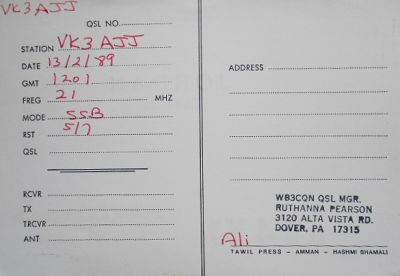 VK3 AJJ
QSL NO.
STATION VK3 AJJ
DATE 13/2/89
GMT 1201
FREG 21 MHZ
MODE SSB
RST 5/7
QSL
RCVR
TX
TRCVR
ANT
ADDRESS
WB3CQN QSL MGR.
RUTHANNA PEARSON
3120 ALTA VISTA RD.
DOVER, PA 17315
Ali
TAWIL PRESS - AMMAN - HASHMI SHAMALI